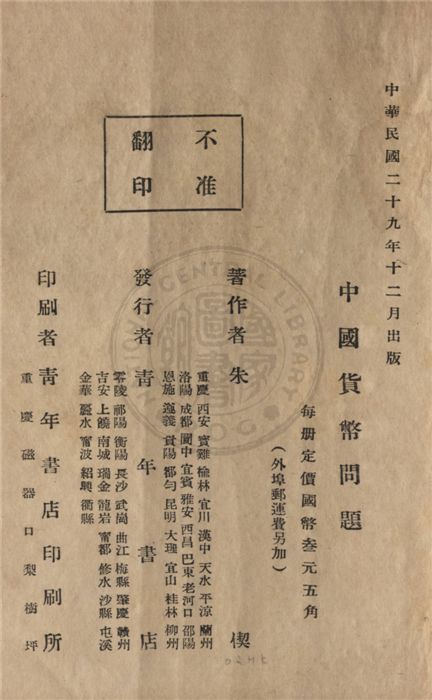 中華民國二十九年十二月出版
中國貨幣問題
每册定價國幣叁元五角
(外埠郵運費另加)
不准
翻印
著作者 朱 偰
重慶 西安 寶雞 榆林 宜川 漢中 天水 平涼 蘭州
洛陽 成都 閬中 宜賓 雅安 西昌 巴東 老河口 邵陽
恩施 遵義 貴陽 都勻 昆明 大理 宜山 桂林 柳州
發行者 青年書店
零陵 祁陽 衡陽 長沙 武岡 曲江 梅縣 肇慶 贛州
吉安 上饒 南城 瑞金 龍岩 甯都 修水 沙縣 屯溪
金華 麗水 甯波 紹興 衢縣
印刷者 青年書店印刷所
重慶磁器口梨樹坪
CENTRAL LIBRARY